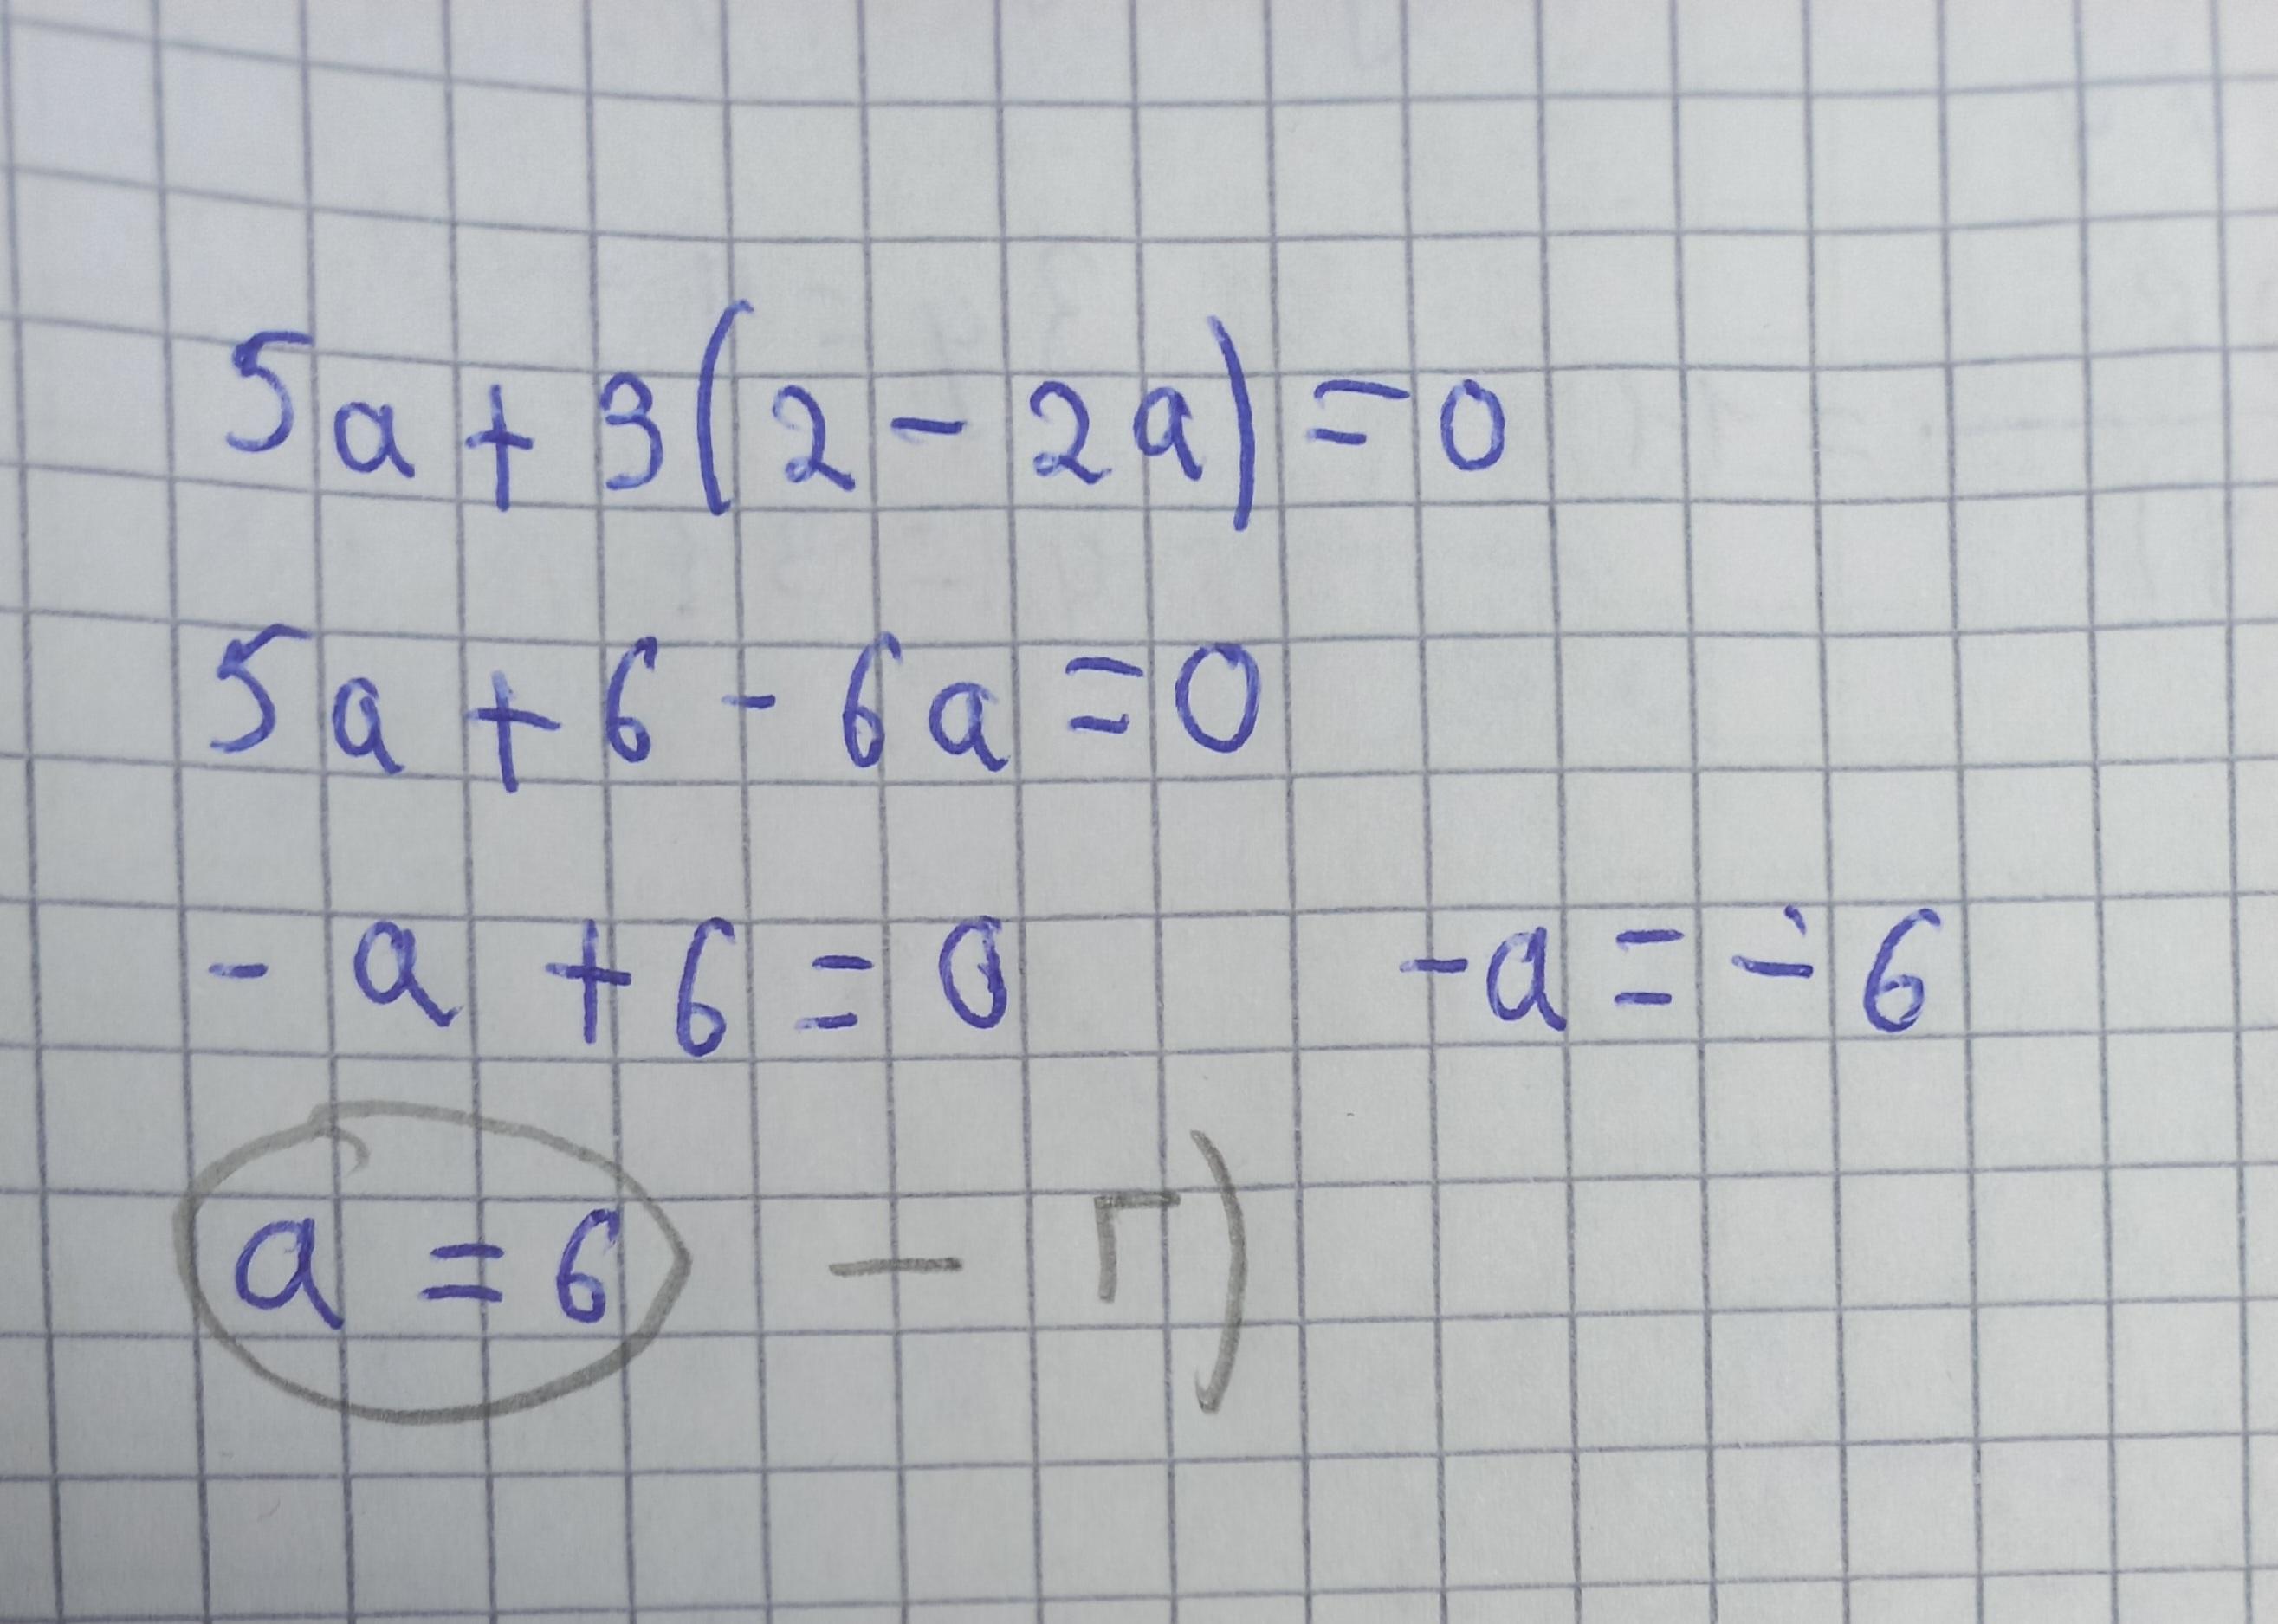 5a + 3(2 - 2a) = 0
5a + 6 - 6a = 0
- a + 6 = 0 -a = - 6
a = 6 — г)